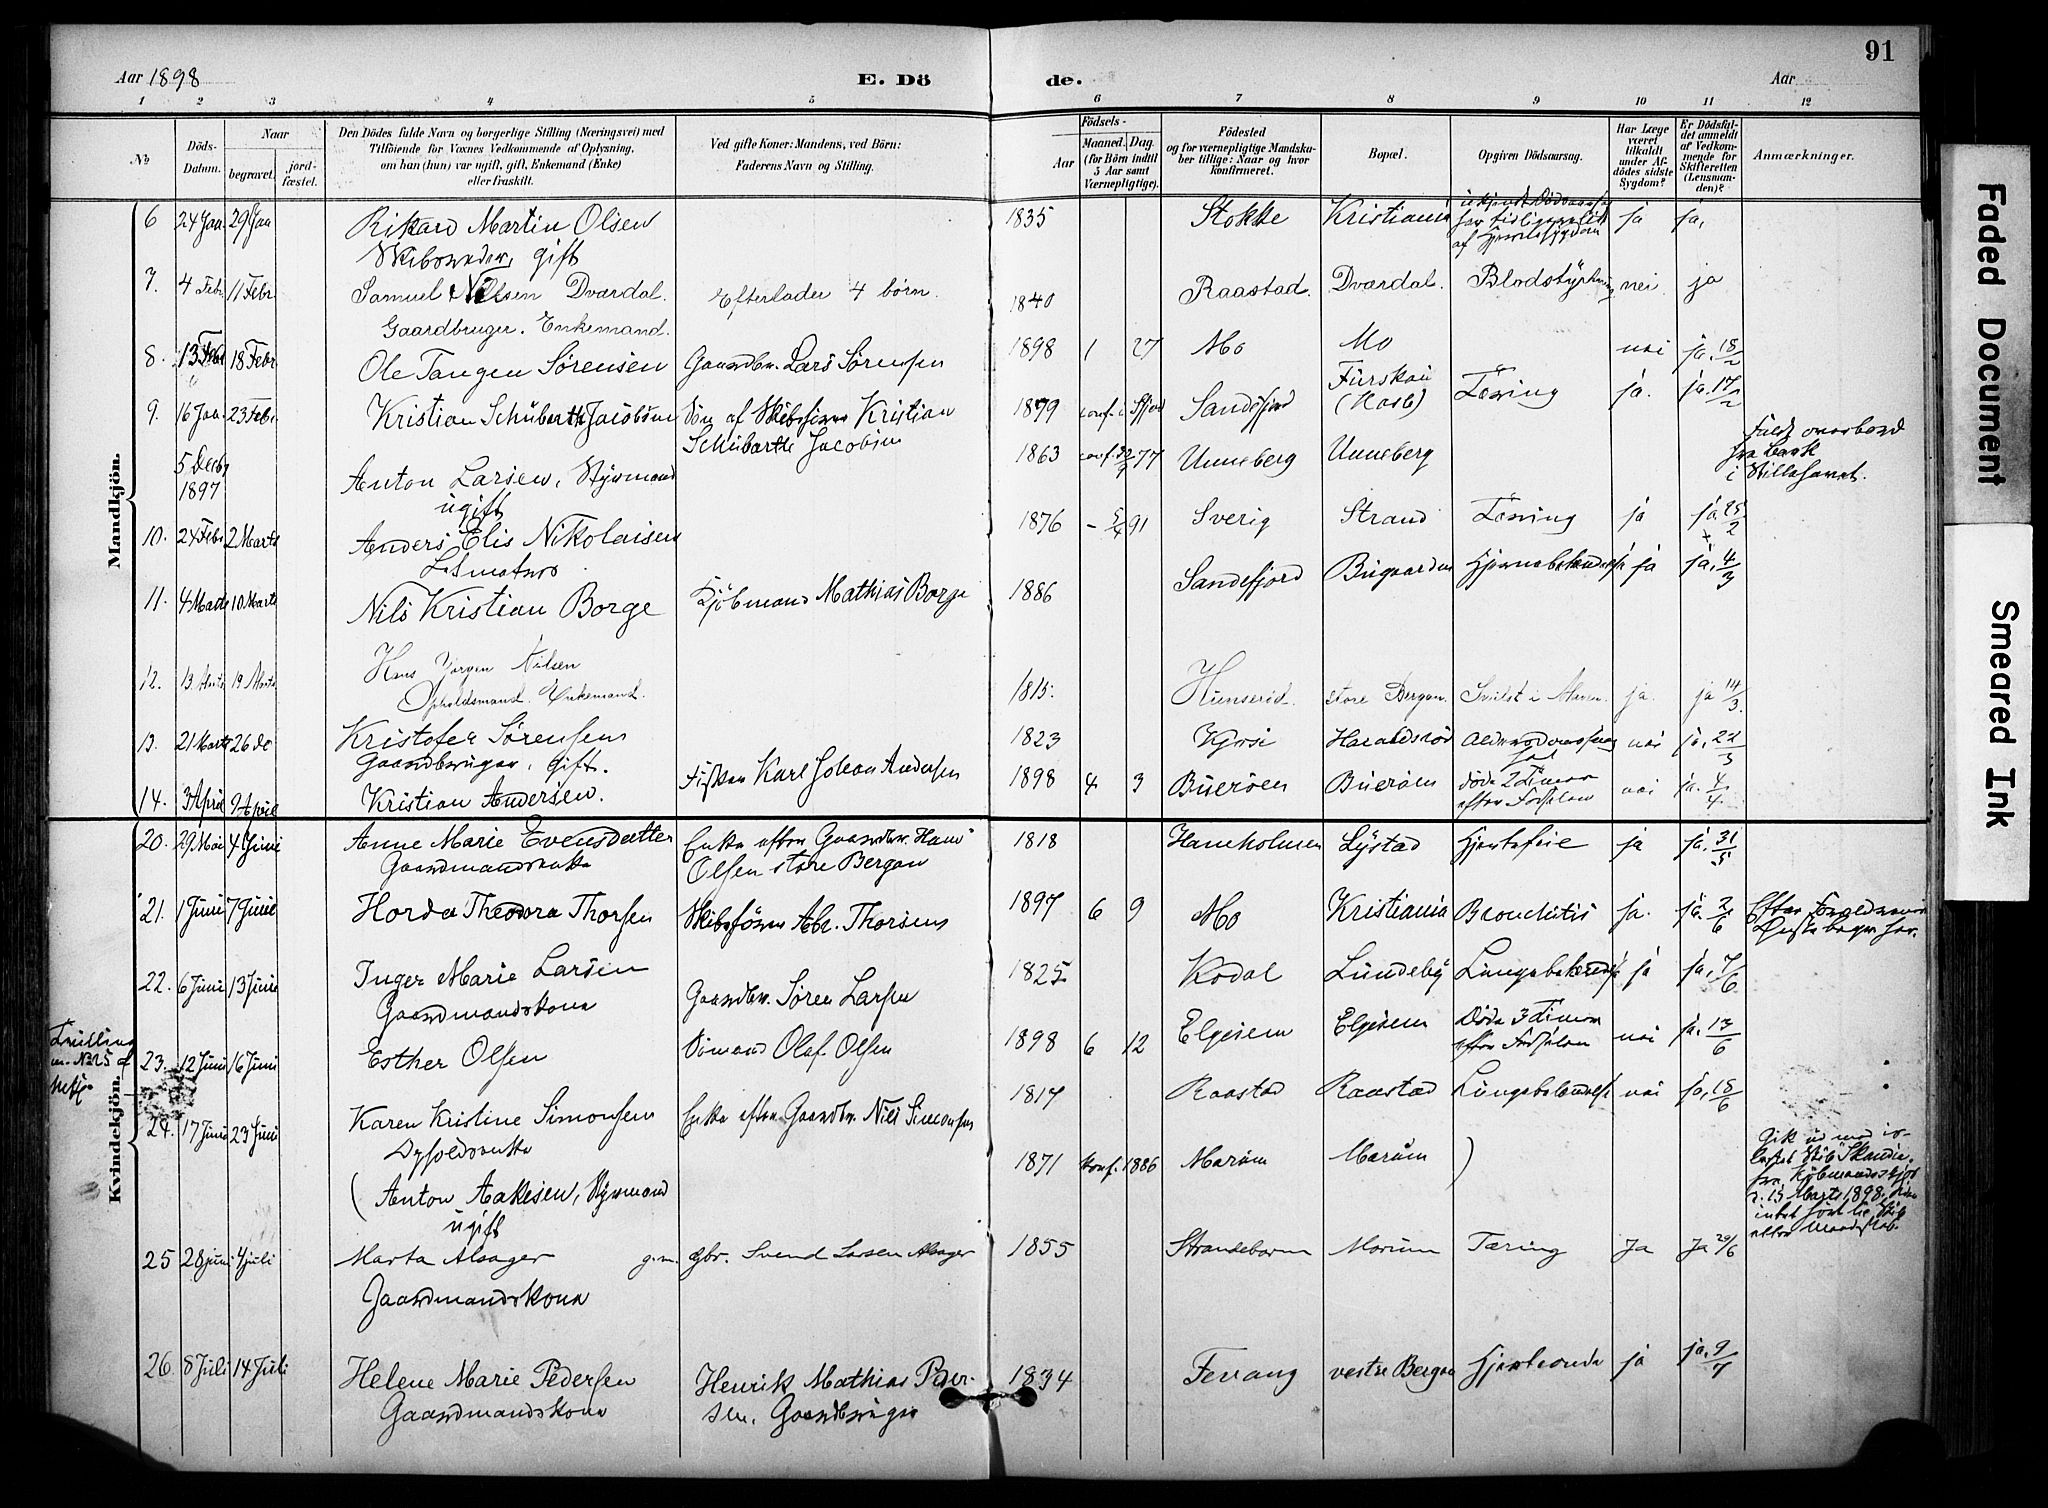 91
Aar 1898
E. Dö de.
Aar
1 2 3 4 5 6 7 8 9 10 11 12
No
Döds-Datum.
Naar
begravet.
jord-fæstet.
Den Dödes fulde Navn og borgerlige Stilling (Næringsvei) med
Tilföiende for Voxnes Vedkommende af Oplysning,
om han (hun) var ugift, gift, Enkemand (Enke)
eller fraskilt.
Ved gifte Koner: Mandens, ved Börn:
Faderens Navn og Stilling.
Födsels-
Aar
Maaned. Dag.
(for Börn indtil
5 Aar samt
Værnepligtige).
Födested
og for værnepligtige Mandska-
ber tillige: Naar og hvor
konfirmeret.
Bopæl.
Opgiven Dödsaarsag.
Har Læge
været
tilkaldt
under Af-
dödes sidste
Sygdom?
Er Dödsfal-
det anmeldt
af Vedkom-
mende for
Skifteretten
(Lensman-
den)?
Anmærkninger.
Mandkjön.
6 24 Jan 29 Jan Rikard Martin Olsen 1835 Stokke Kristiania ja ja,
gift
7. 4 Febr 11 Febr. Samuel Nilsen Dverdal. Efterlader 4 børn. 1840 Raastad. Dverdal. nei. ja
Gaardbruger. Enkemand.
8. 13 Febr 18 Febr Ole Tangen Sørensen Gaardbr. Lars Sørensen 1898 1 27 Mo Mo nei ja. 18/2
9. 16 Jan. 23 Febr. Kristian Schubarth Jacobsen Søn af Skibsfører Kristian Schubarth Jacobsen 1879 Sandefjord Tæring ja. ja. 17/2
5 Decbr 1897 Anton Larsen, Styrmand 1863 77 Unneberg Unneberg Faldt overbord
ugift fra
i Stillehavet.
10. 24 Febr 2 Marts Anders Elis Nikolaisen 1876 91 Sverig Strand Tæring ja ja. 25/2
11. 4 Marts 10 Marts Nils Kristian Borge Kjøbmand Mathias Borge 1886 Sandefjord ja ja. 4/3
12. 13 Marts 19 Marts Hans Jørgen Nilsen 1815. store Bergan. ja. ja 14/3.
Enkemand.
13. 21 Marts 26 de Kristofer Sørensen 1823 Haraldsrød nei ja. 22/3
Gaardbruger, gift.
14. 3 April 9 April Kristian Andersen. Fisker Karl Johan Andersen 1898 4 3 Buerøen Buerøen døde 2 Timer efter Fødselen nei ja. 4/4
Kvindekjön.
20. 29 Mai 4 Juni Anne Marie Evensdatter Enke efter Gaardbr. Hans 1818 Haneholmen Lystad Hjertefeil ja ja. 31/5
Gaardmandsenke Olsen store Bergan
21. 1 Juni 7 Juni Horda Theodora Thorsen Skibsfører Abr. Thorsens 1897 6 9 Mo Kristiania Bronchitis ja. ja. 2/6
22. 6 Juni 13 Juni Inger Marie Larsen Gaardbr. Søren Larsen 1825 Kodal Lundeby ja ja. 7/6
Gaardmandskone
23. 12 Juni 16 Juni Esther Olsen Sømand Olaf Olsen 1898 6 12 Elgesem Elgesem Døde 3 Timer efter Fødselen nei ja. 13/6
24. 17 Juni 23 Juni Karen Kristine Simonsen Enke efter Gaardbr. Nils Simonsen 1817 Raastad Raastad nei ja, 18/6
(Anton Aakesen, Styrmand 1871 konf. 1886 Marøm Marøm ) Gik ud med
ugift
15 Marts 1898,
25 28 juni 4 juli Marta Alsager g.m. gbr. Svend Larsen Alsager 1855 Strandebarm Marum Tæring Ja Ja 29/6
Gaardmandskone
26. 8 Juli 14 Juli Helene Marie Pedersen Henrik Mathias Peder- 1834 Fevang vestre Bergan ja ja. 9/7
Gaardmandskone sen. Gaardbruger
Faded Document
Smeared Ink